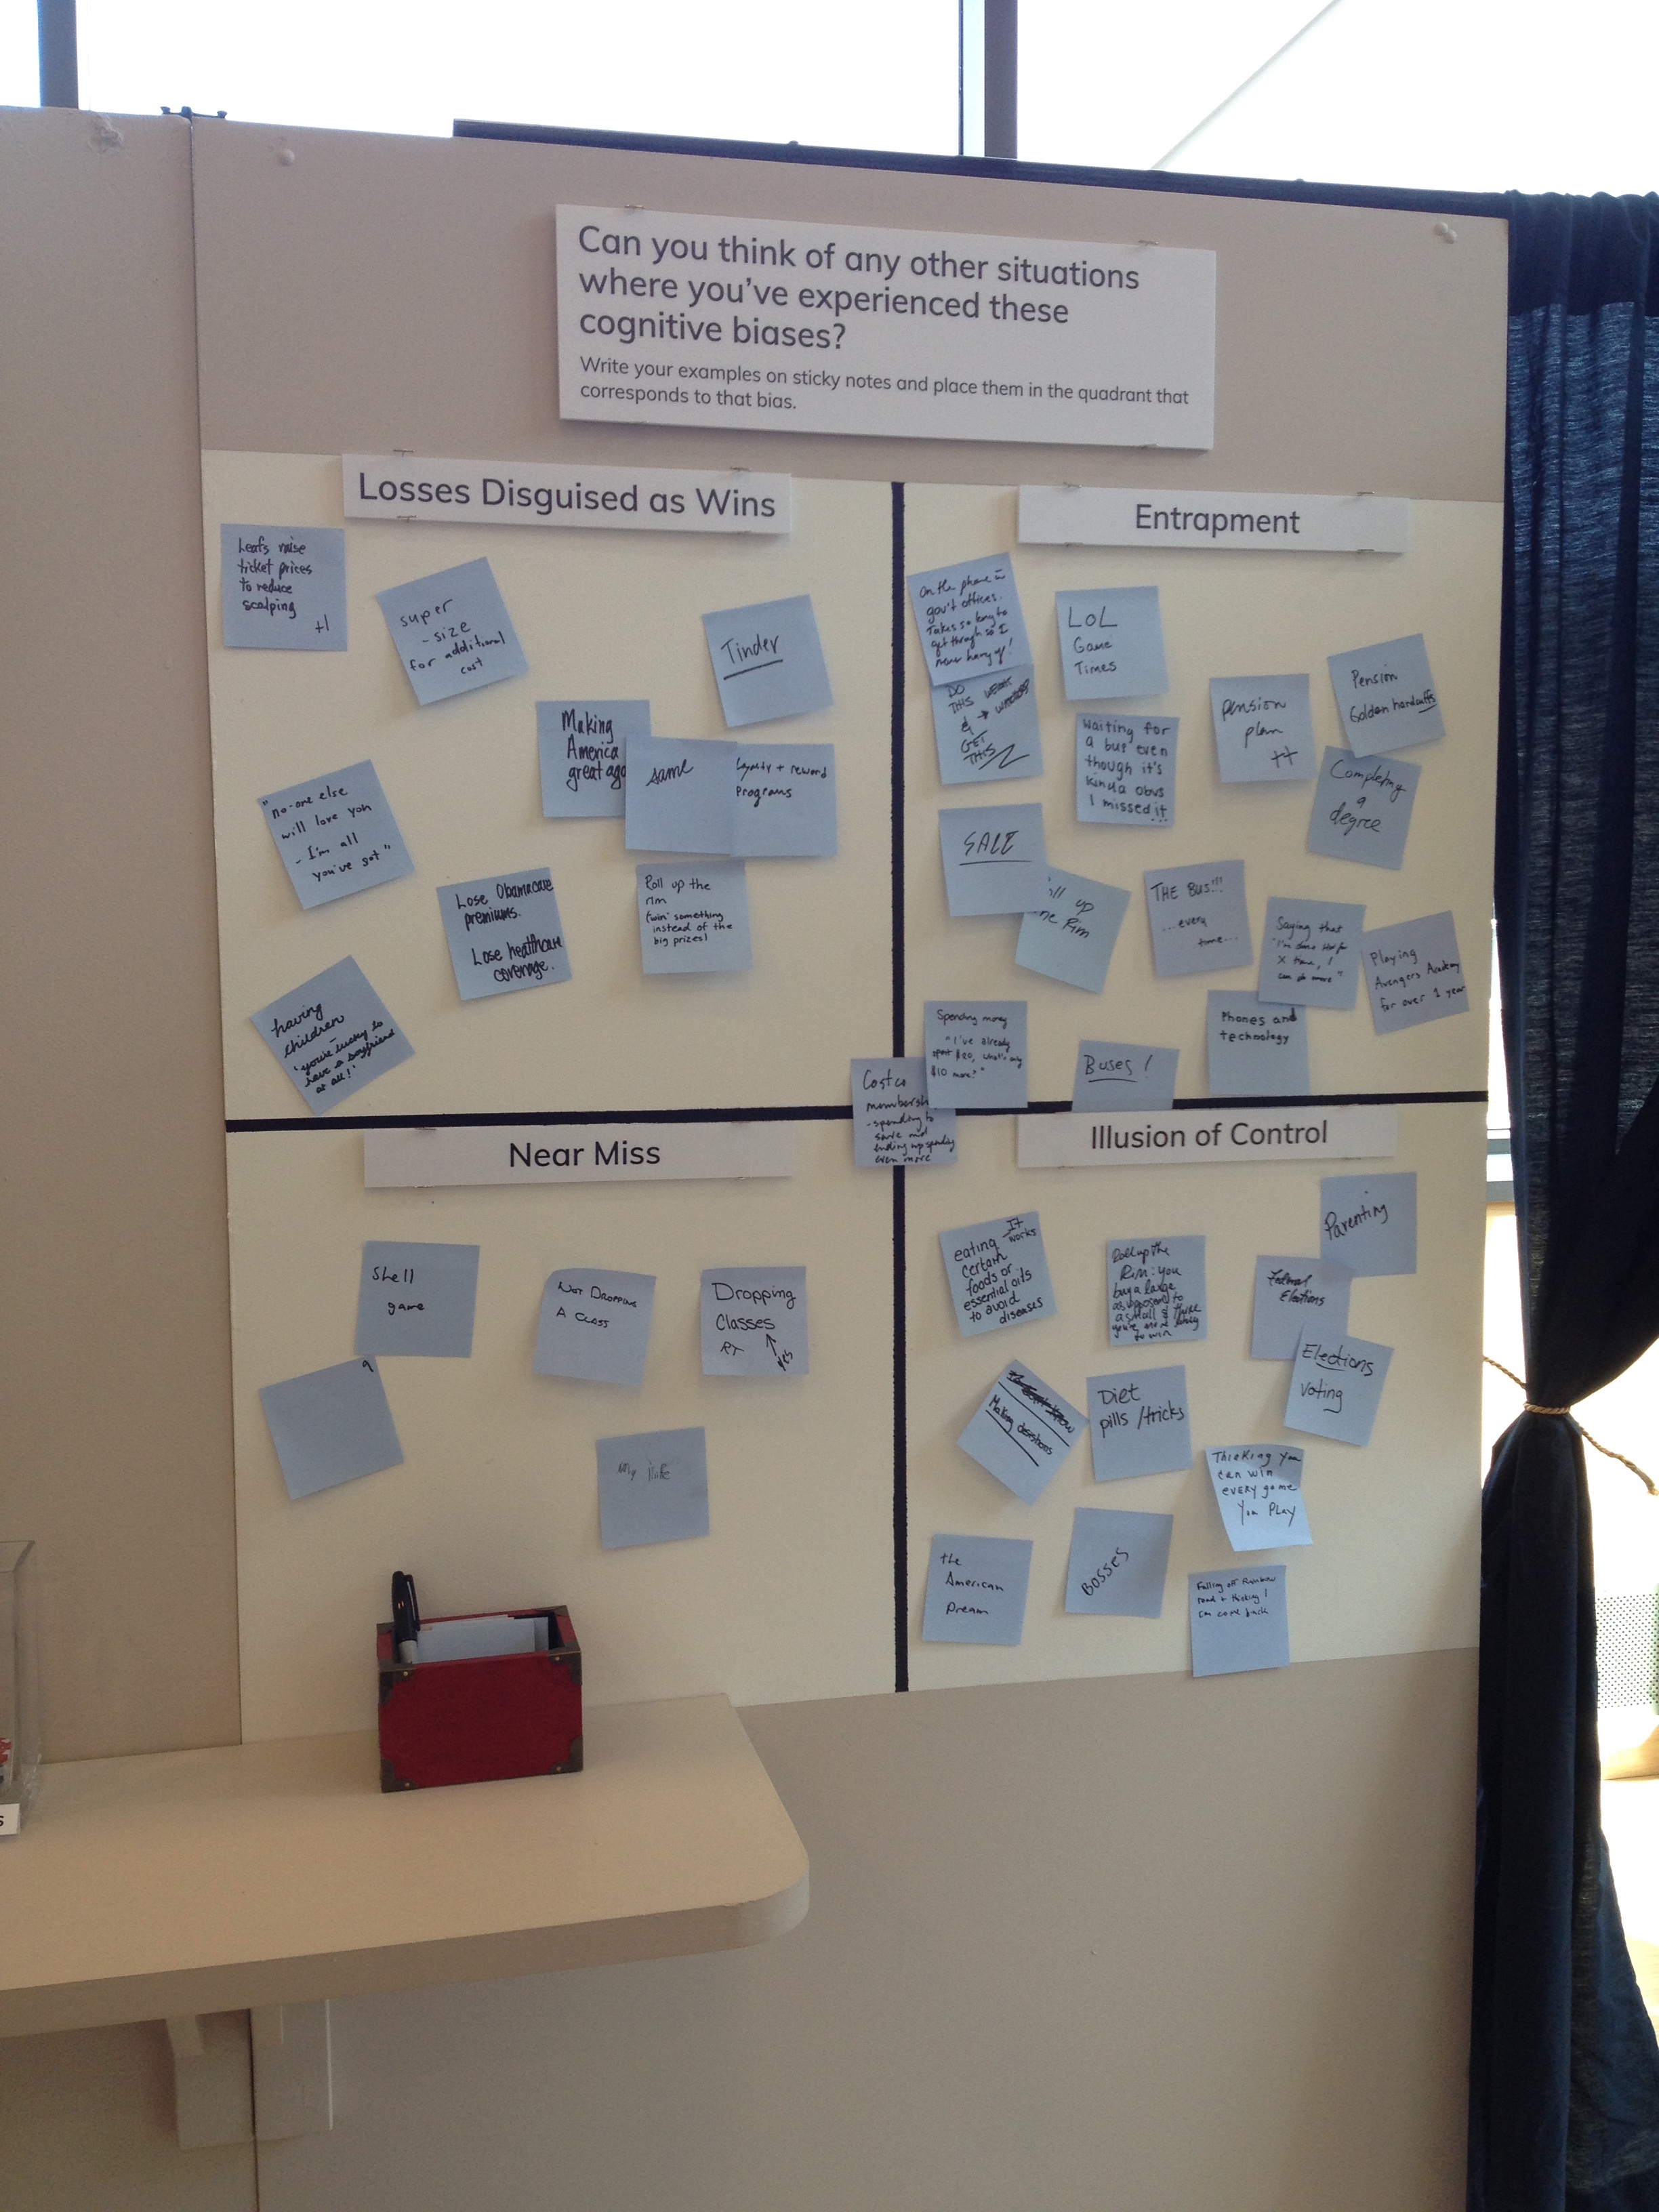 Can you think of any other situations
where you've experienced these
cognitive biases?
Write your examples on sticky notes and place them in the quadrant that
corresponds to that bias.
Losses Disguised as Wins
Leafs raise
ticket prices
to reduce
scalping
+1
super
-size
for additional
cost
Tinder
Making
America
great aga
same
loyalty + reward
programs
"no-one else
will love you
- I'm all
you've got"
Lose Obamacare
premiums.
Lose healthcare
coverage.
Roll up the
rim
'win' something
instead of the
big prizes!
having
children
'you're lucky to
have a boyfriend
at all!'
Entrapment
on the phone
gov't offices.
Takes so long to
get through so I
never hang up!
LOL
Game
Times
DO
THIS
&
GET
THIS
Waiting for
a bus even
though it's
kinda obvs
I missed it
!!!
pension
plan
++
Pension
Golden handcuffs
Completing
a
degree
SALE
oll up
he Rim
THE BUS!!!
...every
time...
Saying that
"I'm done
X time, I
can do more"
Playing
Avengers Academy
for over 1 year
Spending money
"I've already
spent $20, what's only
$10 more?"
Phones and
technology
Buses!
Costco
membersh
-spending to
save and
ending up spending
even more
Near Miss
Shell
game
NOT DROPPING
A CLASS
Dropping
Classes
RT
yes
9
My life
Illusion of Control
eating
certain
foods or
essential oils
to avoid
diseases
It
works
Roll up the
Rim: you
buy a large
as opposed to
a small & think
you're more likely
to win
Parenting
Federal
Elections
Elections
Voting
Making decisions
Diet
pills/tricks
Thinking you
can win
every game
You Play
the
American
Dream
Bosses
Falling off Rainbow
road + thinking I
can come back
S